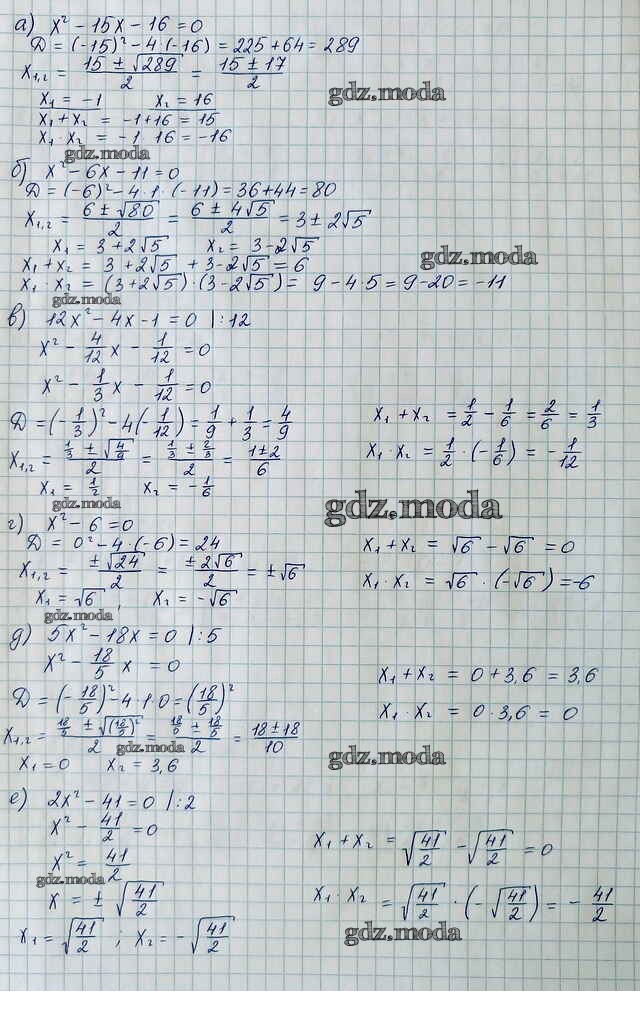 а) x² - 15x - 16 = 0
D = (-15)² - 4·(-16) = 225 + 64 = 289
x₁,₂ = (15 ± √289)/2 = (15 ± 17)/2
gdz.moda
x₁ = -1 x₂ = 16
x₁ + x₂ = -1 + 16 = 15
x₁ · x₂ = -1 · 16 = -16
gdz.moda
б) x² - 6x - 11 = 0
D = (-6)² - 4·1·(-11) = 36 + 44 = 80
x₁,₂ = (6 ± √80)/2 = (6 ± 4√5)/2 = 3 ± 2√5
x₁ = 3 + 2√5 x₂ = 3 - 2√5
gdz.moda
x₁ + x₂ = 3 + 2√5 + 3 - 2√5 = 6
x₁ · x₂ = (3 + 2√5)·(3 - 2√5) = 9 - 4·5 = 9 - 20 = -11
gdz.moda
в) 12x² - 4x - 1 = 0 |:12
x² - 4/12 x - 1/12 = 0
x² - 1/3 x - 1/12 = 0
D = (-1/3)² - 4(-1/12) = 1/9 + 1/3 = 4/9
x₁,₂ = (1/3 ± √(4/9))/2 = (1/3 ± 2/3)/2 = (1 ± 2)/6
x₁ = 1/2 x₂ = -1/6
x₁ + x₂ = 1/2 - 1/6 = 2/6 = 1/3
x₁ · x₂ = 1/2 · (-1/6) = -1/12
gdz.moda
gdz.moda
г) x² - 6 = 0
D = 0² - 4·(-6) = 24
x₁,₂ = ±√24/2 = ±2√6/2 = ±√6
x₁ = √6, x₂ = -√6
x₁ + x₂ = √6 - √6 = 0
x₁ · x₂ = √6 · (-√6) = -6
gdz.moda
д) 5x² - 18x = 0 |:5
x² - 18/5 x = 0
D = (-18/5)² - 4·1·0 = (18/5)²
x₁,₂ = (18/5 ± √(18/5)²)/2 = (18/5 ± 18/5)/2 = (18 ± 18)/10
gdz.moda
x₁ = 0 x₂ = 3,6
x₁ + x₂ = 0 + 3,6 = 3,6
x₁ · x₂ = 0 · 3,6 = 0
gdz.moda
е) 2x² - 41 = 0 |:2
x² - 41/2 = 0
x² = 41/2
gdz.moda
x = ± √(41/2)
x₁ = √(41/2) ; x₂ = -√(41/2)
x₁ + x₂ = √(41/2) - √(41/2) = 0
x₁ · x₂ = √(41/2) · (-√(41/2)) = -41/2
gdz.moda